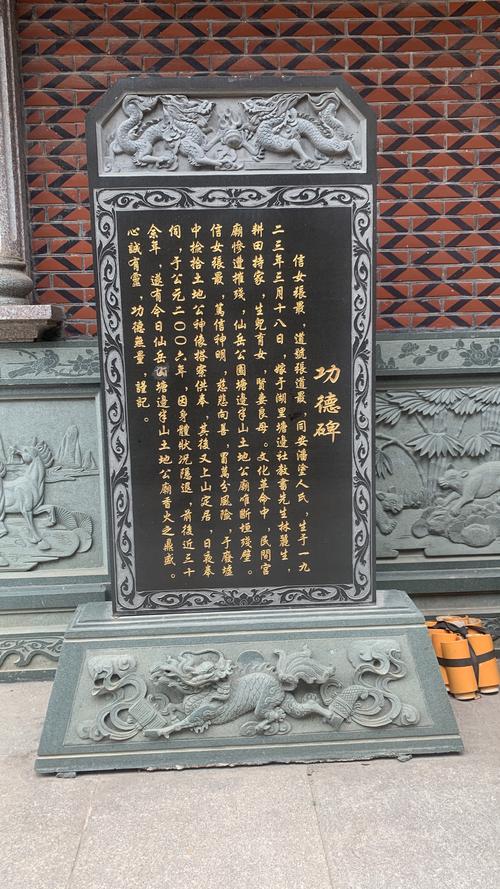 功德碑
信女張最，道號張道最，同安潘塗人氏，生于一九
二三年三月十八日，嫁于湖里塘邊社教書先生林麗生，
耕田持家，生兒育女，賢妻良母。文化革命中，民間宫
廟慘遭摧殘，仙岳公園塘邊半山土地公廟唯斷垣殘壁。
信女張最，篤信神明，慈悲向善，冒萬分風險，于廢墟
中撿拾土地公神像搭寮供奉，其後又上山定居，日夜奉
伺，于公元二00六年，因身體狀況隱退，前後近三十
余年，遂有今日仙岳山塘邊半山土地公廟香火之鼎盛。
心誠有靈，功德無量，謹記。